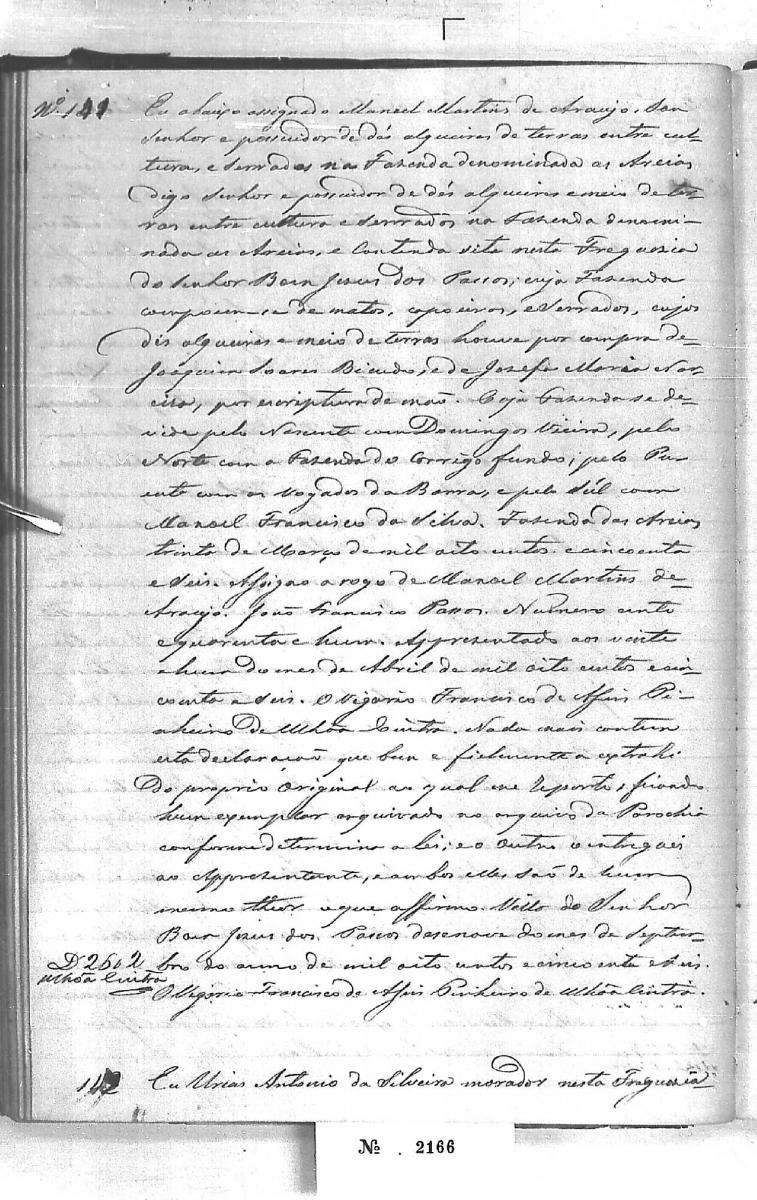 Nº 141 Eu abaixo assignado Manoel Martins de Araujo, Sou
Senhor e possuidor de dés alqueires de terras entre cul-
tura, e Serrados na Fazenda denominada as Areias
digo Senhor e possuidor de dés alqueires e meio de ter-
ras entre cultura e Serrados na Fazenda denomi-
nada as Areias, e Contenda sita nesta Freguezia
do Senhor Bom Jesus dos Passos; cuja Fazenda
compoem-se de matos, capoeiros, e Serrados, cujos
dés alqueires e meio de terras houve por compra de
Joaquim Soares Bicudo, e de Josefa Maria
por escriptura de mão. Cuja Fazenda se de-
vide pelo Nascente com Domingos Vieira, pelo
Norte com a Fazenda do Corrigo fundo; pelo Pu-
ente com os da Barra, e pelo Súl com
Manoel Francisco da Silva. Fazenda das Areias
trinta de Março de mil oito centos e cincoenta
e Seis. Assigno a rogo de Manoel Martins de
Araujo. João Francisco Passos. Numero cento
e quarenta e hum. Appresentado aos vinte
e hum do mes de Abril de mil oito centos e cin-
coenta e Seis. O Vigario Francisco de Assis Pi-
nheiro de Ulhôa Cintra. Nada mais contem
esta declaração que bem e fielmente a extrahi
do proprio Original ao qual me reporto, ficando
hum exemplar arquivado no arquivo da Parochia
conforme determina a lei; e o outro o entreguei
ao Appresentante, e ambos elles são de hum
mesmo theor o que affirmo. Villa do Senhor
Bom Jesus dos Passos desenove do mes de Septem-
D 2502 bro do anno de mil oito centos e cincoenta e Seis.
Ulhôa Cintra O Vigario Francisco de Assis Pinheiro de Ulhôa Cintra.
142 Eu Urias Antonio da Silveira morador nesta Freguezia
Nº . 2166